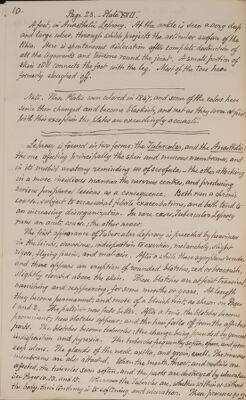 10.
Page 23. Plate XXII.
A foot, in Anaesthetic Leprosy. At the ankle is seen a very deep
and large ulcer, through which projects the articular surface of the
tibia. Here is spontaneous dislocation after complete destruction of
all the ligaments and tendons round the joint. A small portion of
skin still connects the foot with the leg. Most of the toes have
formerly dropped off.
Note. These Plates were colored in 1847, and some of the colors have
since then changed and become blackish, and not as they were at first.
With this exception the plates are exceedingly accurate.
Leprosy is found in two forms; the Tubercular, and the Anaesthetic:
the one affecting principally the skin and mucous membranes, and
in its mildest anatomy reminding us of scrofula; the other attacking
in a more insidious manner the nervous centre, and producing
various peripheric lesions as a consequence. Both run a chronic
course, subject to occasional febrile exacerbations, and both tend to
an increasing disorganization. In rare cases, Tubercular Leprosy
runs an acute course; the other never.
The first appearance of Tubercular Leprosy is preceded by heaviness
in the limbs, drowsiness, indisposition to exertion, melancholy, slight
rigor, flying pains, and malaise. After a while these symptoms remit,
and there appears an eruption of rounded blotches, red or brownish,
slightly elevated above the skin. These blotches are at first transient,
vanishing and reappearing, for some months or years. At length
they become permanent, and are of a bluish tint; as shown on Page
1 and 2. The patient now feels better. After a time, the blotches become
prominent; new blotches appear; and the hair falls off from the affected
parts. The blotches become tubercles; the change being preceded by general
indisposition and pyrexia. The tubercles frequently soften, open, and form
deep ulcers. The glands of the neck, axillae, and groin, swell. The mucous
membranes are also attacked. When the mouth, throat, and nostrils are
affected, the tubercles soon soften, and the parts are destroyed by ulceration